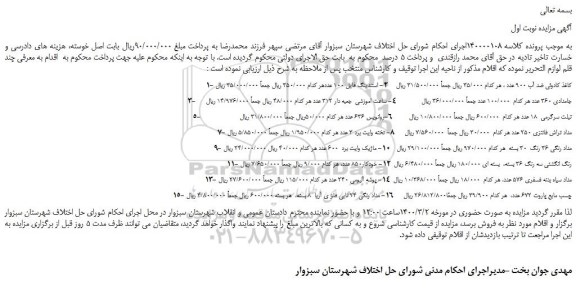 بسمه تعالی
آگهی مزایده نوبت اول
به موجب پرونده کلاسه ۱۴۰۰۰۰۱۰۸اجرای احکام شورای حل اختلاف شهرستان سبزوار آقای مرتضی سپهر فرزند محمدرضا به پرداخت مبلغ ۹۰/۰۰۰/۰۰۰ریال بابت اصل خواسته، هزینه های دادرسی و
خسارت تاخیر تادیه در حق آقای محمد رافتدی و پرداخت ۵ درصد محکوم به بابت حق الاجرای دولتی محکوم گردیده است. با توجه به اینکه محکوم علیه جهت پرداخت محکوم به اقدام به معرفی چند
قلم لوازم التحریر نموده که اقلام مذکور از ناحیه این اجرا توقیف و کارشناس منتخب پس از ملاحظه به شرح ذیل ارزیابی نموده است :
کاغذ کادوئی ضد آب ۹۰۰ عدد هر کدام ۳۵/۰۰۰ ریال جمعاً ۳۱/۵۰۰/۰۰۰ ریال ۲- استیکنگ فابل ۱۰۰ عددهر کدام ۲۵۰/۰۰۰ ریال جمعاً ۲۵/۰۰۰/۰۰۰ ریال ۱-
جامدادی ۳۶۰ عدد هر کدام ۱۰۰/۰۰۰ عدد جمعاً ۳۶/۰۰۰/۰۰۰ ریال ۴- ساعت آموزشی جعبه دار ۳۱۲ عدد هر کدام ۴۸/۰۰۰ ریال جمعاً ۱۴/۹۷۶/۰۰۰ ریال ۳-
تیلت سرگرمی ۱۸ عدد هر کدام ۶۰۰/۰۰۰ ریال جمعاً ۱۰/۸۰۰/۰۰۰ ریال ۶- روکوبس ۶۳۶ عدد هر کدام ۵۰/۰۰۰ریال جمعاً ۳۱/۸۰۰/۰۰۰ ریال ۵-
مداد تراش فانتزی ۲۵۰ عدد هر کدام ۳۰/۰۰۰ ریال جمعاً ۷/۵۶۰/۰۰۰ ریال ۸- تخته وایت برد ۳ عدد هر کدام ۱/۹۵۰/۰۰۰ ریال جمعاً ۵/۸۵۰/۰۰۰ ریال ۷-
مداد رنگی ۳۶ رنگ ۳۰ بسته هر کدام ۹۷۰/۰۰۰ ریال جمعاً ۲۹/۱۰۰/۰۰۰ ریال ۱۰- ماژیک وایت برد ۶۰۰ عدد هر کدام ۴۰/۰۰۰ ریال جمعاً ۲۴/۰۰۰/۰۰۰ ریال ۹-
رنگ انگشتی سه رنگ ۳۶ بسته، بسته ای ۱۸۰/۰۰۰ ریال جمعاً ۶/۴۸۰/۰۰۰ ریال ۱۲- خودکار۸۵۰ عدد هر کدام ۹/۰۰۰ ریال جمعاً ۷/۶۵۰/۰۰۰ ریال ۱۱-
مداد سیاه پنته فسفری ۵۷۶ عدد هر کدام ۱۸/۰۰۰ ریال جمعاً ۱۰/۳۶۸/۰۰۰ ریال ۱۴- پوشه آلبومی ۲۴۰ عدد هر کدام ۱۱۵/۰۰۰ ریال جمعاً ۲۷/۶۰۰/۰۰۰ ریال ۱۳-
چسب مایع پاروت ۶۷۲ عدد هر کدام ۳۹/۹۰۰ ریال کدام جمعاً ۲۶/۸۱۲/۸۰۰ ریال
لذا مقرر گردید مزایده به صورت حضوری در مورخه ۱۴۰۰/۳/۲ساعت ۱۲:۰۰ و با حضور نماینده محترم دادستان عمومی و انقلاب شهرستان سبزوار در محل اجرای احکام شورای حل اختلاف شهرستان سبزوار
برگزار و اقلام مورد نظر به فروش برسد، مزایده از قیمت کارشناسی شروع و به کسانی که بالاترین مبلغ را پیشنهاد نمایند واگذار خواهد گردید، متقاضیان می توانند ظرف مدت ۵ روز قبل از برگزاری مزایده به
این اجرا مراجعت تا ترتیب بازدیدشان از اقلام توقیفی داده شود.
مهدی جوان بخت -مدیراجرای احکام مدنی شورای حل اختلاف شهرستان سبزوار
۰۲۱-۸۸۳۴۹۶۷۰-۵